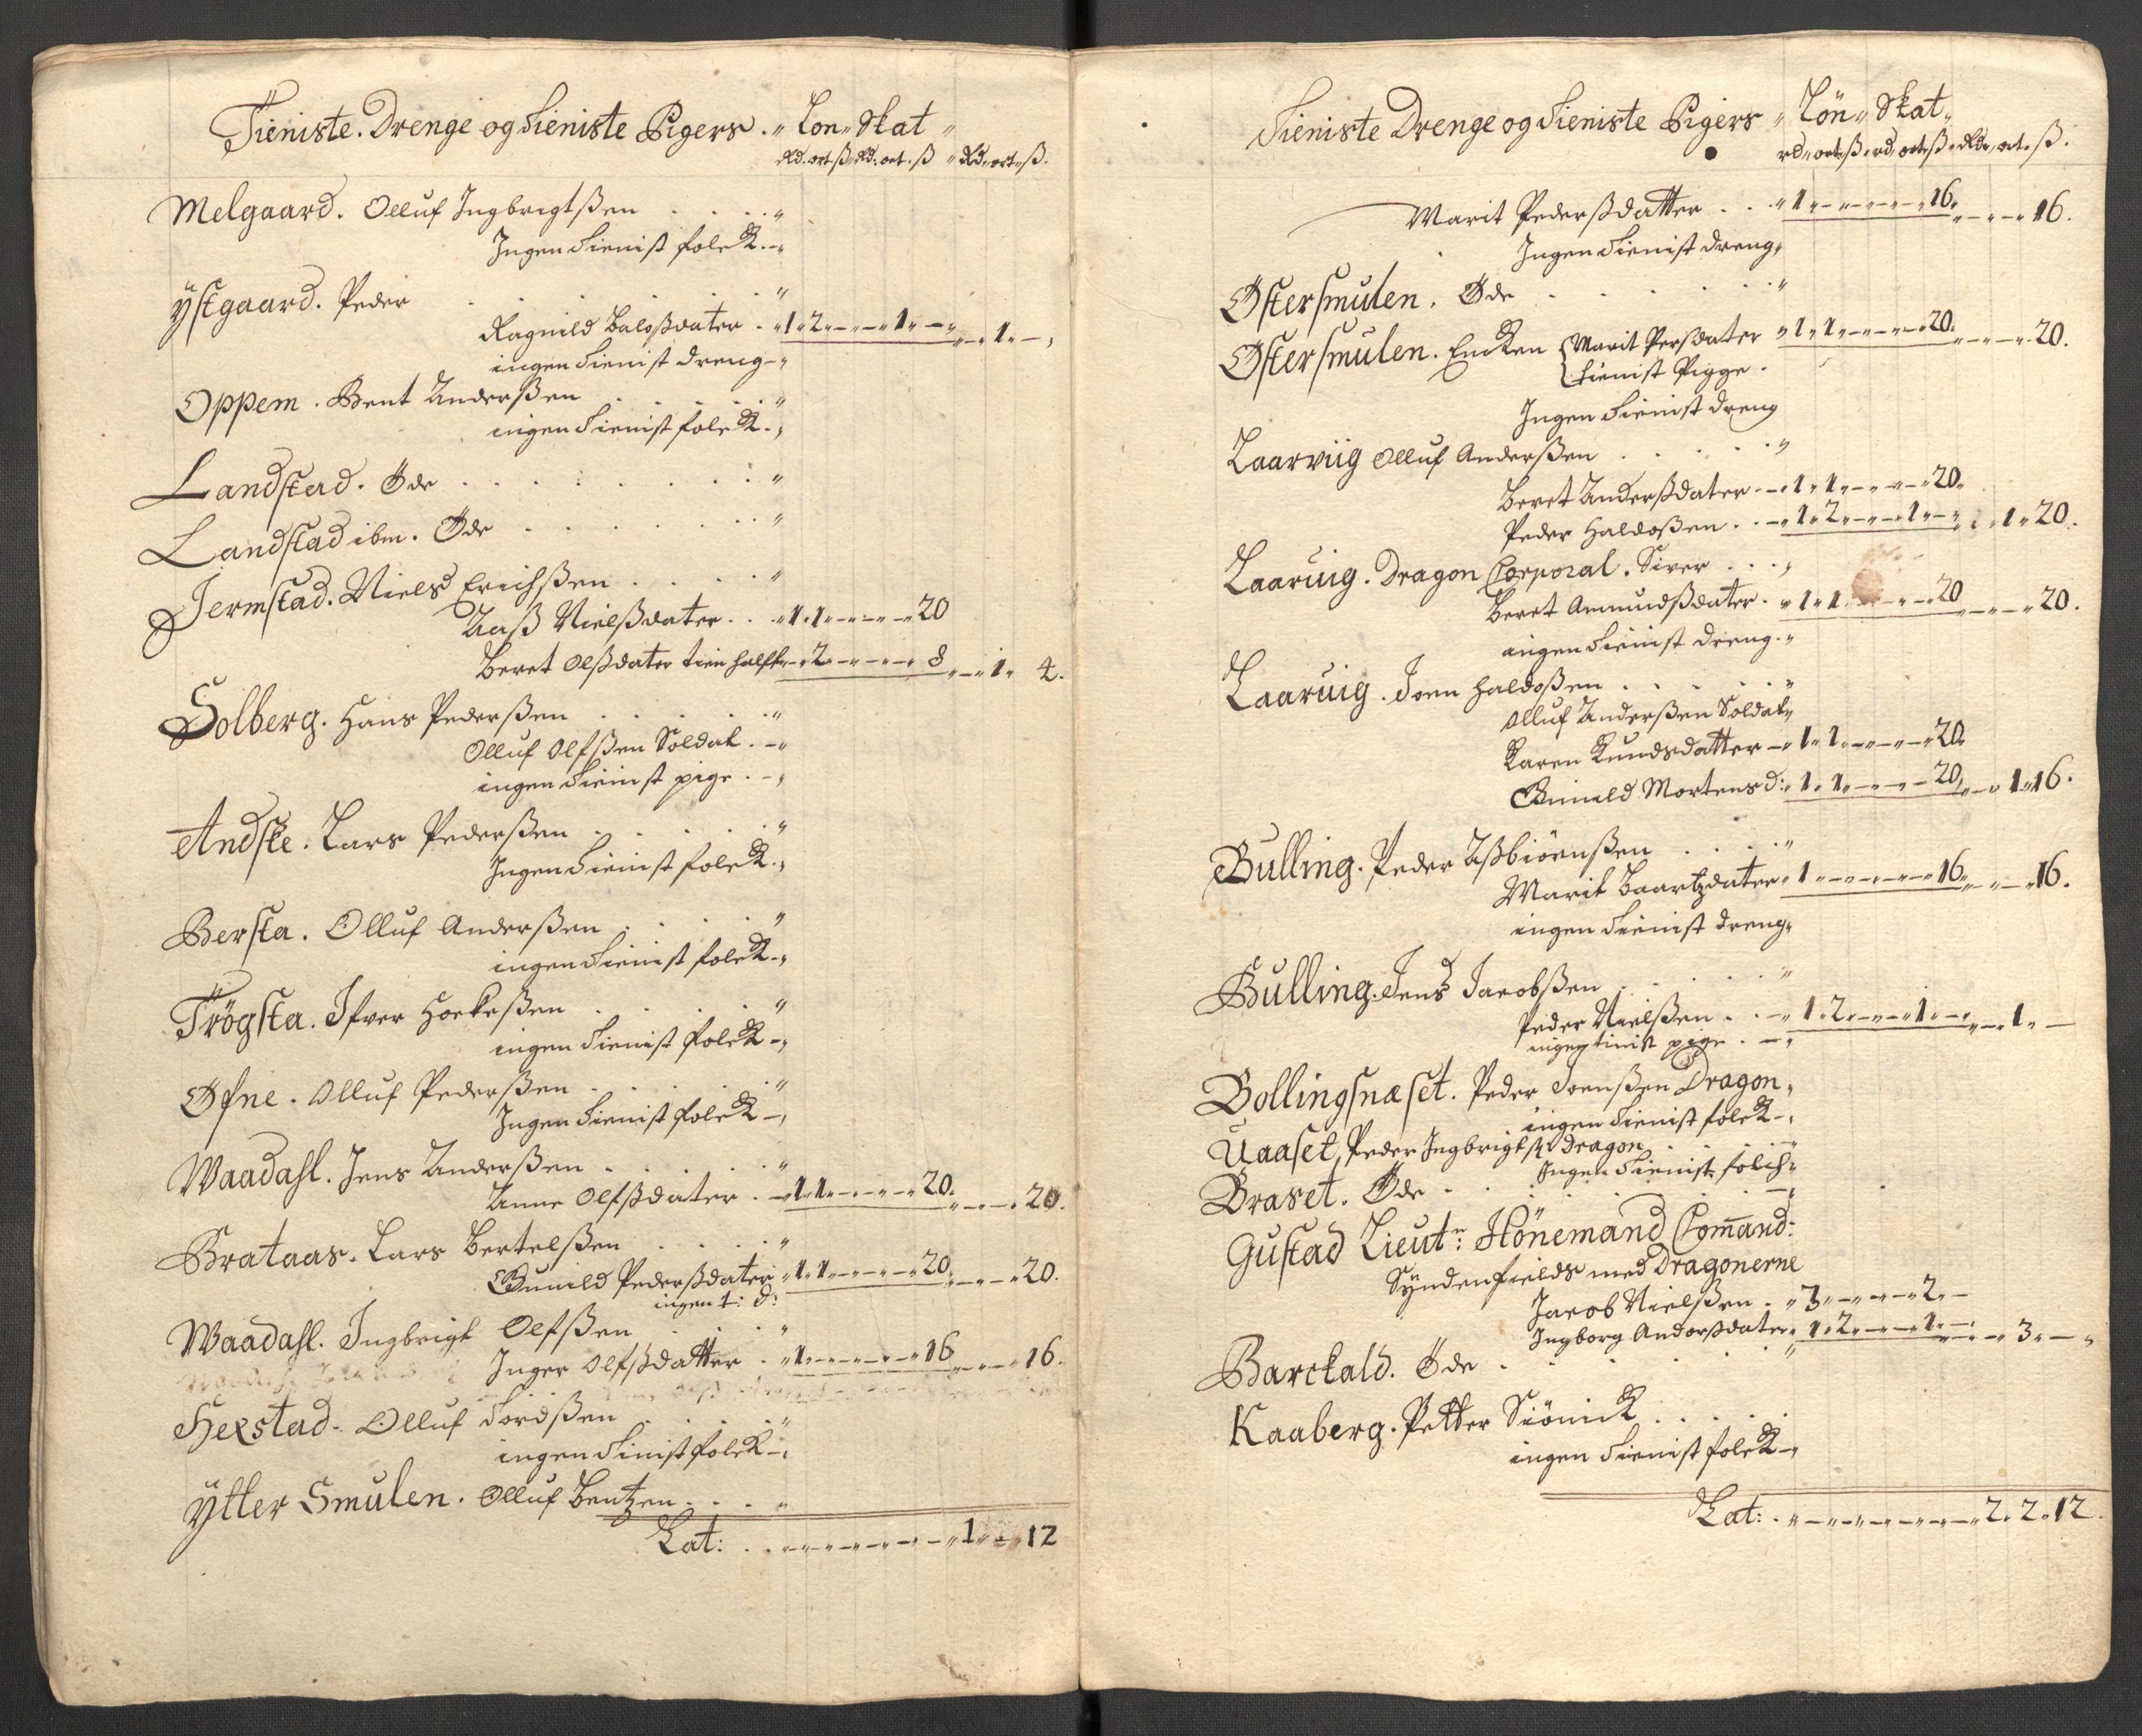 Tieniste. Drenge og tieniste Pigers. „ Lon „ Skat „
Rd. ort ß Rd. ort. ß „ Rd. ort. ß.
Melgaard. Olluf Ingbrigtßen . . . . „
Ingen tienist folck. - „
Ystgaard. Peder . . . . . „
Ragnild  . „ 1 „ 2 „ - „ - „ 1 „ - „ „ - „ 1 „ - „
ingen tienist dreng - „
Oppem. Bent Anderßen . . . . „
ingen tienist folck. „
Landstad. Øde . . . . . . . „
Landstad ibm. Øde . . . . . . „
Jermstad. Niels Erichßen . . . . „
Aaß Nielßdater . . „ 1 „ 1 „ - „ - „ - „ 20
Beret Olßdater tien halft - „ 2 „ - „ - „ - „ 8 „ - „ 1 „ 4.
Solberg. Hans Pederßen . . . . . „
Olluf Olfßen Soldat . - „
ingen tienist pige . - „
Andske. Lars Pederßen . . . . . „
Ingen tienist folck. „
Bersta. Olluf Anderßen . . . . „
ingen tienist folck - „
Trögsta. Ifver Hoekeßen . . . . „
ingen tienist folck - „
Øfne. Olluf Pederßen . . . . . „
Ingen tienist folck - „
Waadahl. Jens Anderßen . . . . . „
Anne Olfßdater . - „ 1 „ 1 „ - „ - „ - „ 20. „ - „ - „ 20.
Brataas. Lars Bertelßen . . . . „
Gunild Pederßdater „ 1 „ 1 „ - „ - „ - „ 20. „ - „ - „ 20.
ingen t: d:
Waadahl. Ingbrigt Olfßen . . . . „
Inger Olfßdatter . „ 1 „ - „ - „ - „ - „ 16 „ - „ - „ 16.
Hexstad. Olluf Tordßen . . . . „
ingen tinist folck - „
Ytter Smulen. Olluf Bentzen . . . „
Lat: . . „ - „ - „ - „ - „ - „ 1 „ - „ 12
Tieniste Drenge og tieniste Pigers „ Lön „ Skat „
rd „ ort „ ß „ rd „ ort „ ß „ Rd „ ort. ß.
Marit Pederßdatter . . „ 1 „ - „ - „ - „ - „ 16 „ „ - „ - „ 16.
Ingen tienist dreng „
Østersmulen. Øde . . . . . . „
Østersmulen. Encken { Marit Persdater „ 1 „ 1 „ - „ - „ - „ 20. „ - „ - „ 20.
tienist Pigge .
Ingen tienist dreng
Laarviig Olluf Anderßen . . . . „
Beret Anderßdater - „ 1 „ 1 „ - „ - „ - „ 20.
Peder Haldoßen . . - „ 1 „ 2 „ - „ - „ 1 „ - „ „ 1 „ 20.
Laaruig. Dragon Corporal. Siver . . . „
Beret Amundßdater . „ 1 „ 1 „ - „ - „ 20 „ - „ - „ 20.
ingen tienist dreng. „
Laaruig. Joen Haldoßen . . . . . „
Olluf Anderßen Soldat „
Karen Kundsdatter - „ 1 „ 1 „ - „ - „ - „ 20.
Gunild Mortensd: „ 1 „ 1 „ - „ - „ - 20 „ - „ 1 „ 16.
Bulling. Peder Aßbiörnßen . . . . „
Marit Baartzdater „ 1 „ - „ - „ - „ - „ 16 „ - „ - „ 16.
ingen tienist dreng „
Bulling. Jens Jacobßen . . . . . „
Peder Nielßen . . - „ 1 „ 2 „ - „ - „ 1 „ - „ „ - „ 1 „ -
ingen tinist pige . - „
Bollingsnæset. Peder Joenßen Dragon „
ingen tienist folck - „
Uaaset, Peder Ingbrigtß: Dragon . . .
Ingen tienist folch „
Braset. Øde . . . . . . . „
Gustad Lieutn: Hönemand Comand:
Syndenfields med Dragonerne
Jacob Nielßen . „ 3 „ - „ - „ - „ 2 „ -
Ingborg Andorßdater „ 1 „ 2 „ - „ - „ 1 „ - „ „ - „ 3 „ - „
Barckald. Øde . . . . . . . „
Kaaberg. Petter Siönick . . . .
ingen tienist folck - „
Lat: . „ - „ - „ - „ - „ - „ - „ 2 „ 2 „ 12.